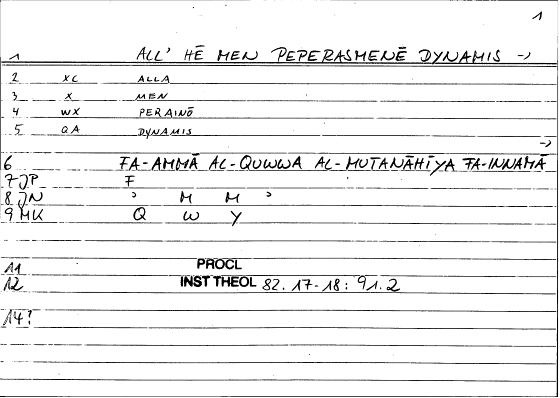 1
1 ALL' HĒ MEN PEPERASMENĒ DYNAMIS →
2 XC ALLA
3 X MEN
4 WX PERAINŌ
5 QA DYNAMIS
→
6 FA-AMMĀ AL-QUWWA AL-MUTANĀHĪYA FA-INNAMĀ
7 JP F
8 JN ' M M '
9 MK Q W Y
11 PROCL
12 INST THEOL 82. 17-18: 91.2
14?